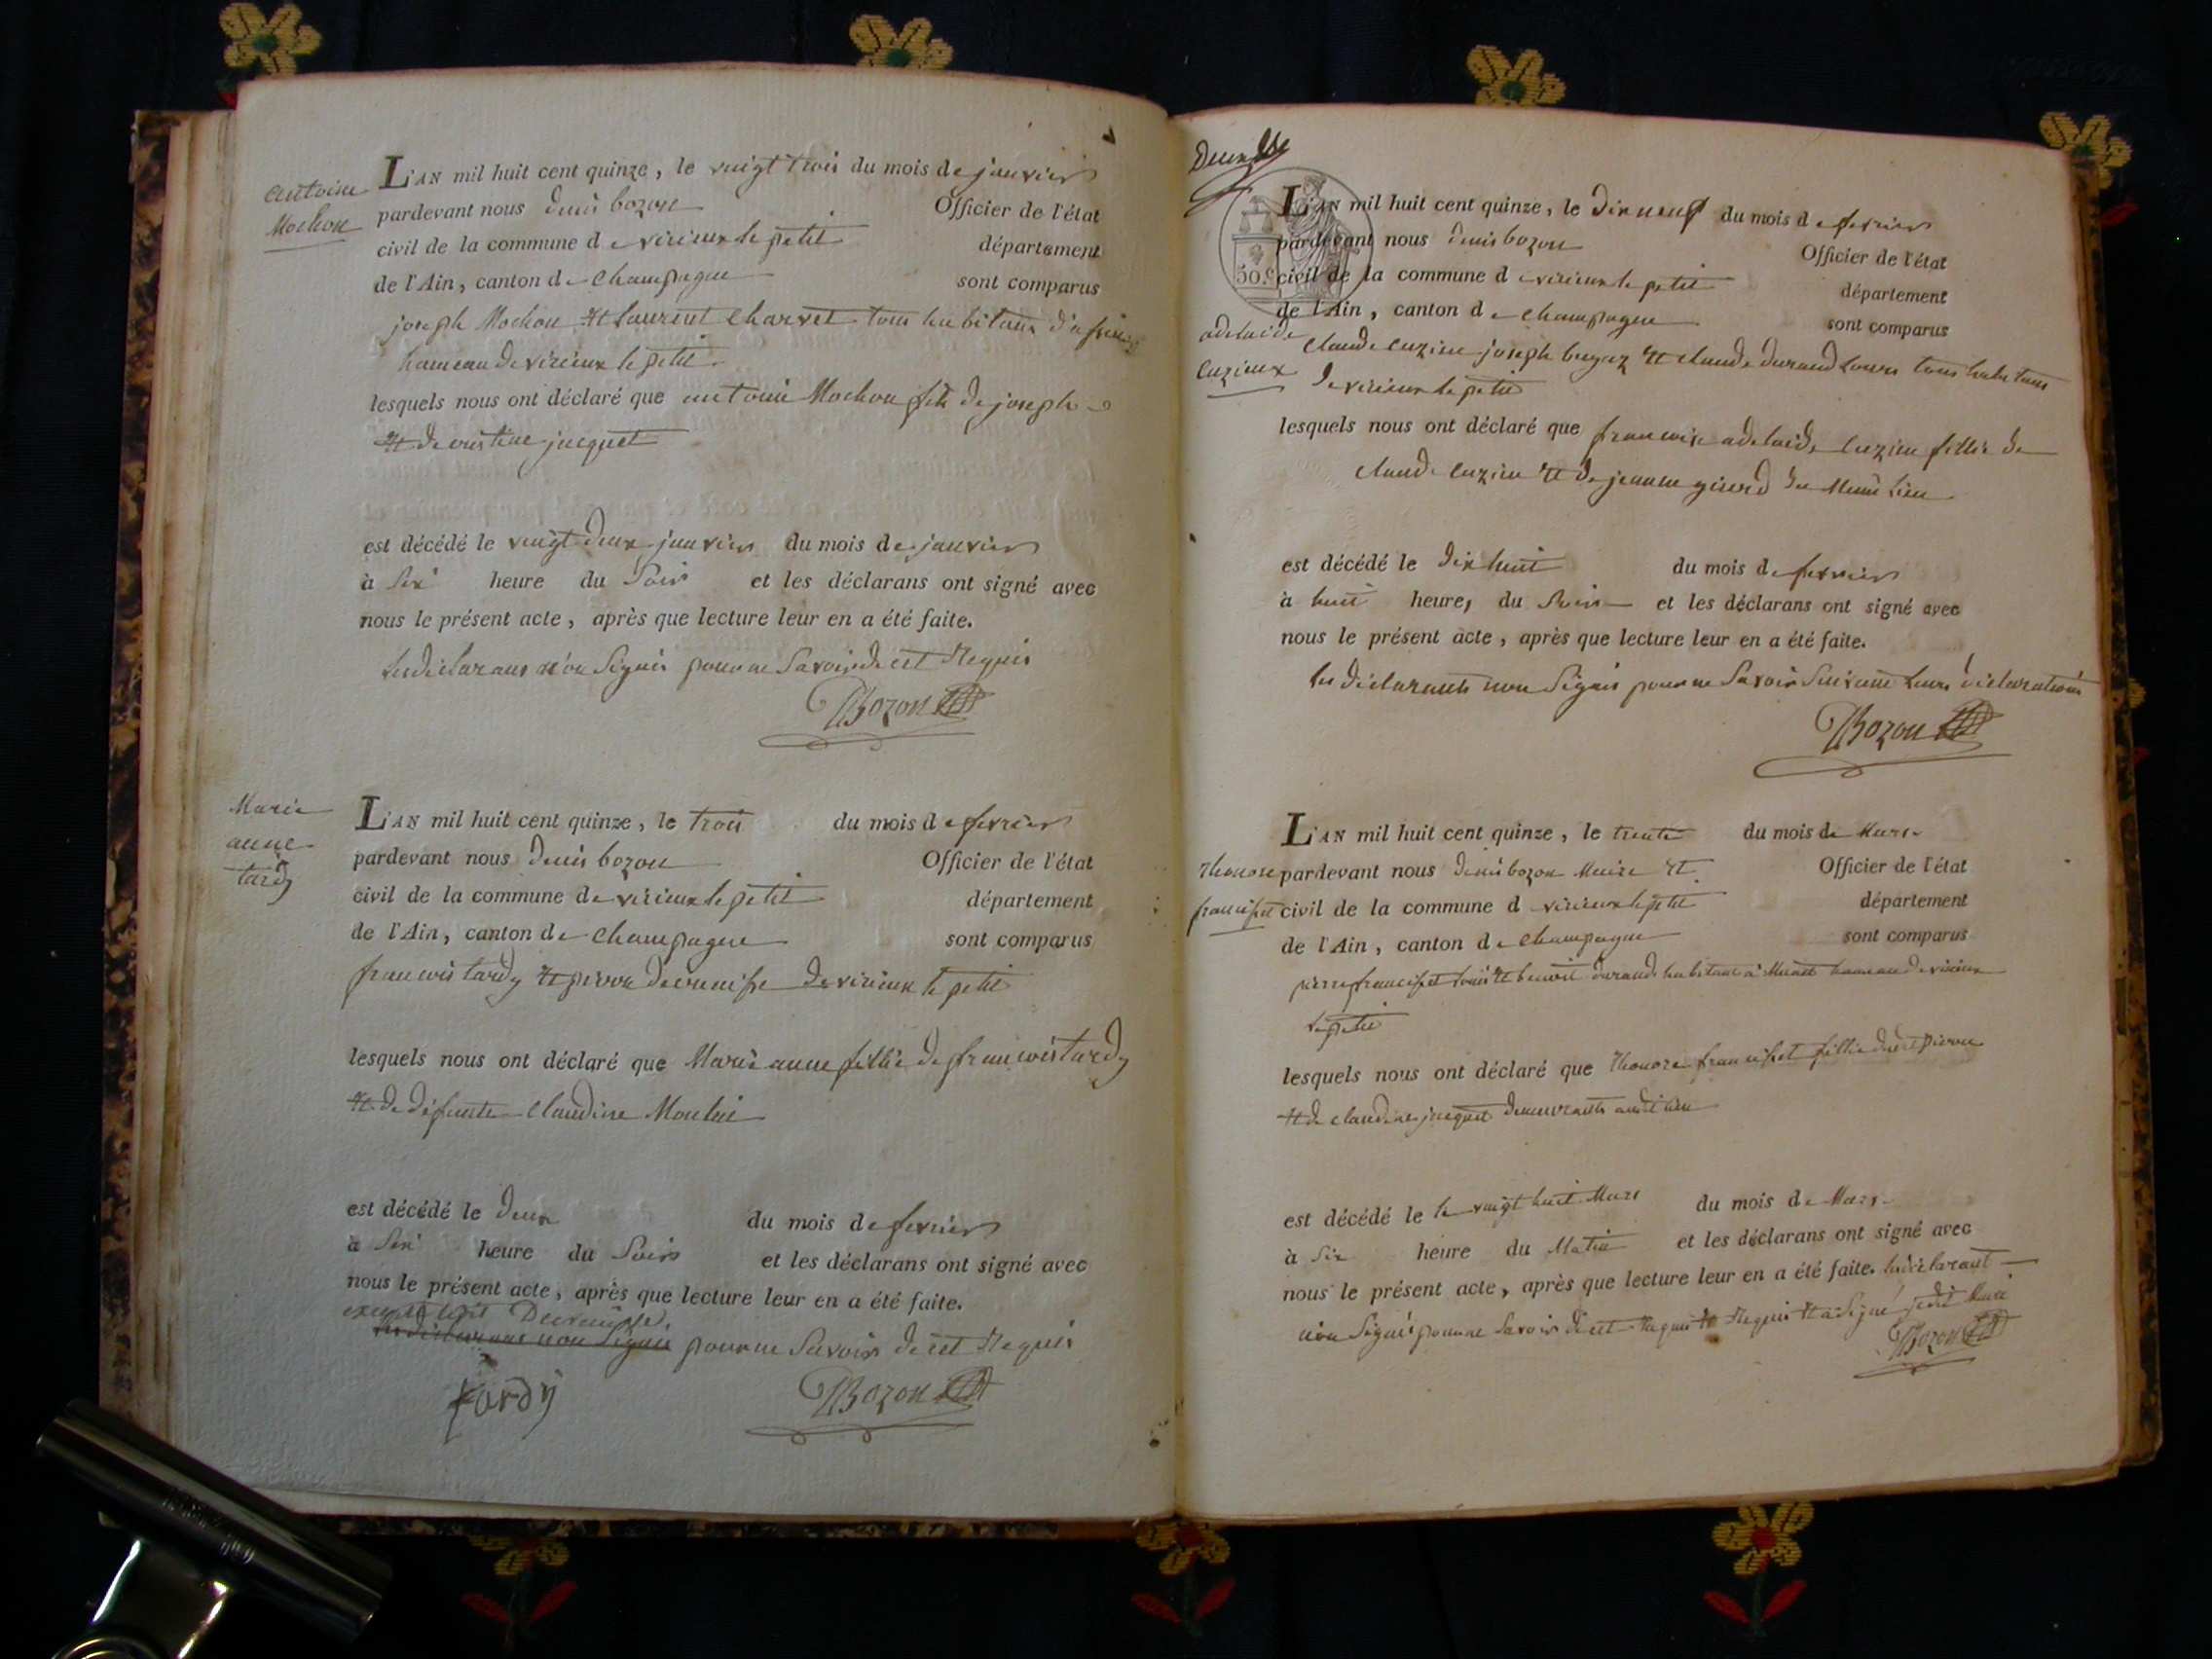 antoine
Mochon
L'AN mil huit cent quinze, le vuigt trois du mois de janvier
pardevant nous denis bozon Officier de l'état
civil de la commune de virieux le petit département
de l'Ain, canton de Champagne sont comparus
joseph Mochon et Laurent Charvet tous habitans
hameau de virieux le petit
lesquels nous ont déclaré que antoine Mochon fils de joseph
et de cristine jacquet
est décédé le vuigt deux janvier du mois de janvier
à six heure du Soir et les déclarans ont signé avec
nous le présent acte, après que lecture leur en a été faite.
Les déclarans n'on Signés pour ne Savoir de cet Requis
Bozon
Marie
anne
tardy
L'AN mil huit cent quinze, le trois du mois de fevrier
pardevant nous denis bozon Officier de l'état
civil de la commune de virieux le petit département
de l'Ain, canton de Champagne sont comparus
francois tardy et pierre de virieux le petit
lesquels nous ont déclaré que Marie anne fillie de francois tardy
et de défunte Claudine
est décédé le deux du mois de fevrier
à six heure du Soir et les déclarans ont signé avec
nous le présent acte, après que lecture leur en a été faite.
les déclarans non Signés pour ne Savoir de cet Requis
tardy Bozon
50.c
adelaide
Cuzieux
L'AN mil huit cent quinze, le dix neuf du mois de fevrier
pardevant nous denis bozon Officier de l'état
civil de la commune de virieux le petit département
de l'Ain, canton de Champagne sont comparus
Claude Cuzieu joseph bugaz et claude durand tous habitans
de virieux le petit
lesquels nous ont déclaré que francoise adelaide Cuzieu fillie de
claude Cuzieu et de jeanne du Meme Lieu
est décédé le dix huit du mois de fevrier
à huit heures du Soir et les déclarans ont signé avec
nous le présent acte, après que lecture leur en a été faite.
les déclarants non Signés pour ne Savoir Suivant Leurs déclarations
Bozon
francisset
L'AN mil huit cent quinze, le trente du mois de Mars
pardevant nous denis bozon Maire et Officier de l'état
civil de la commune d virieux le petit département
de l'Ain, canton de Champagne sont comparus
pierre francisset et benoit durand habitant à hameau de virieux
le petit
lesquels nous ont déclaré que francisset fillie dudit pierre
et de claudine jacquet demeurants audit lieu
est décédé le le vuigt huit Mars du mois de Mars
à Six heure du Matin et les déclarans ont signé avec
nous le présent acte, après que lecture leur en a été faite. les déclarant
non Signés pour ne Savoir de cet Requis Requis et a Signé
Bozon